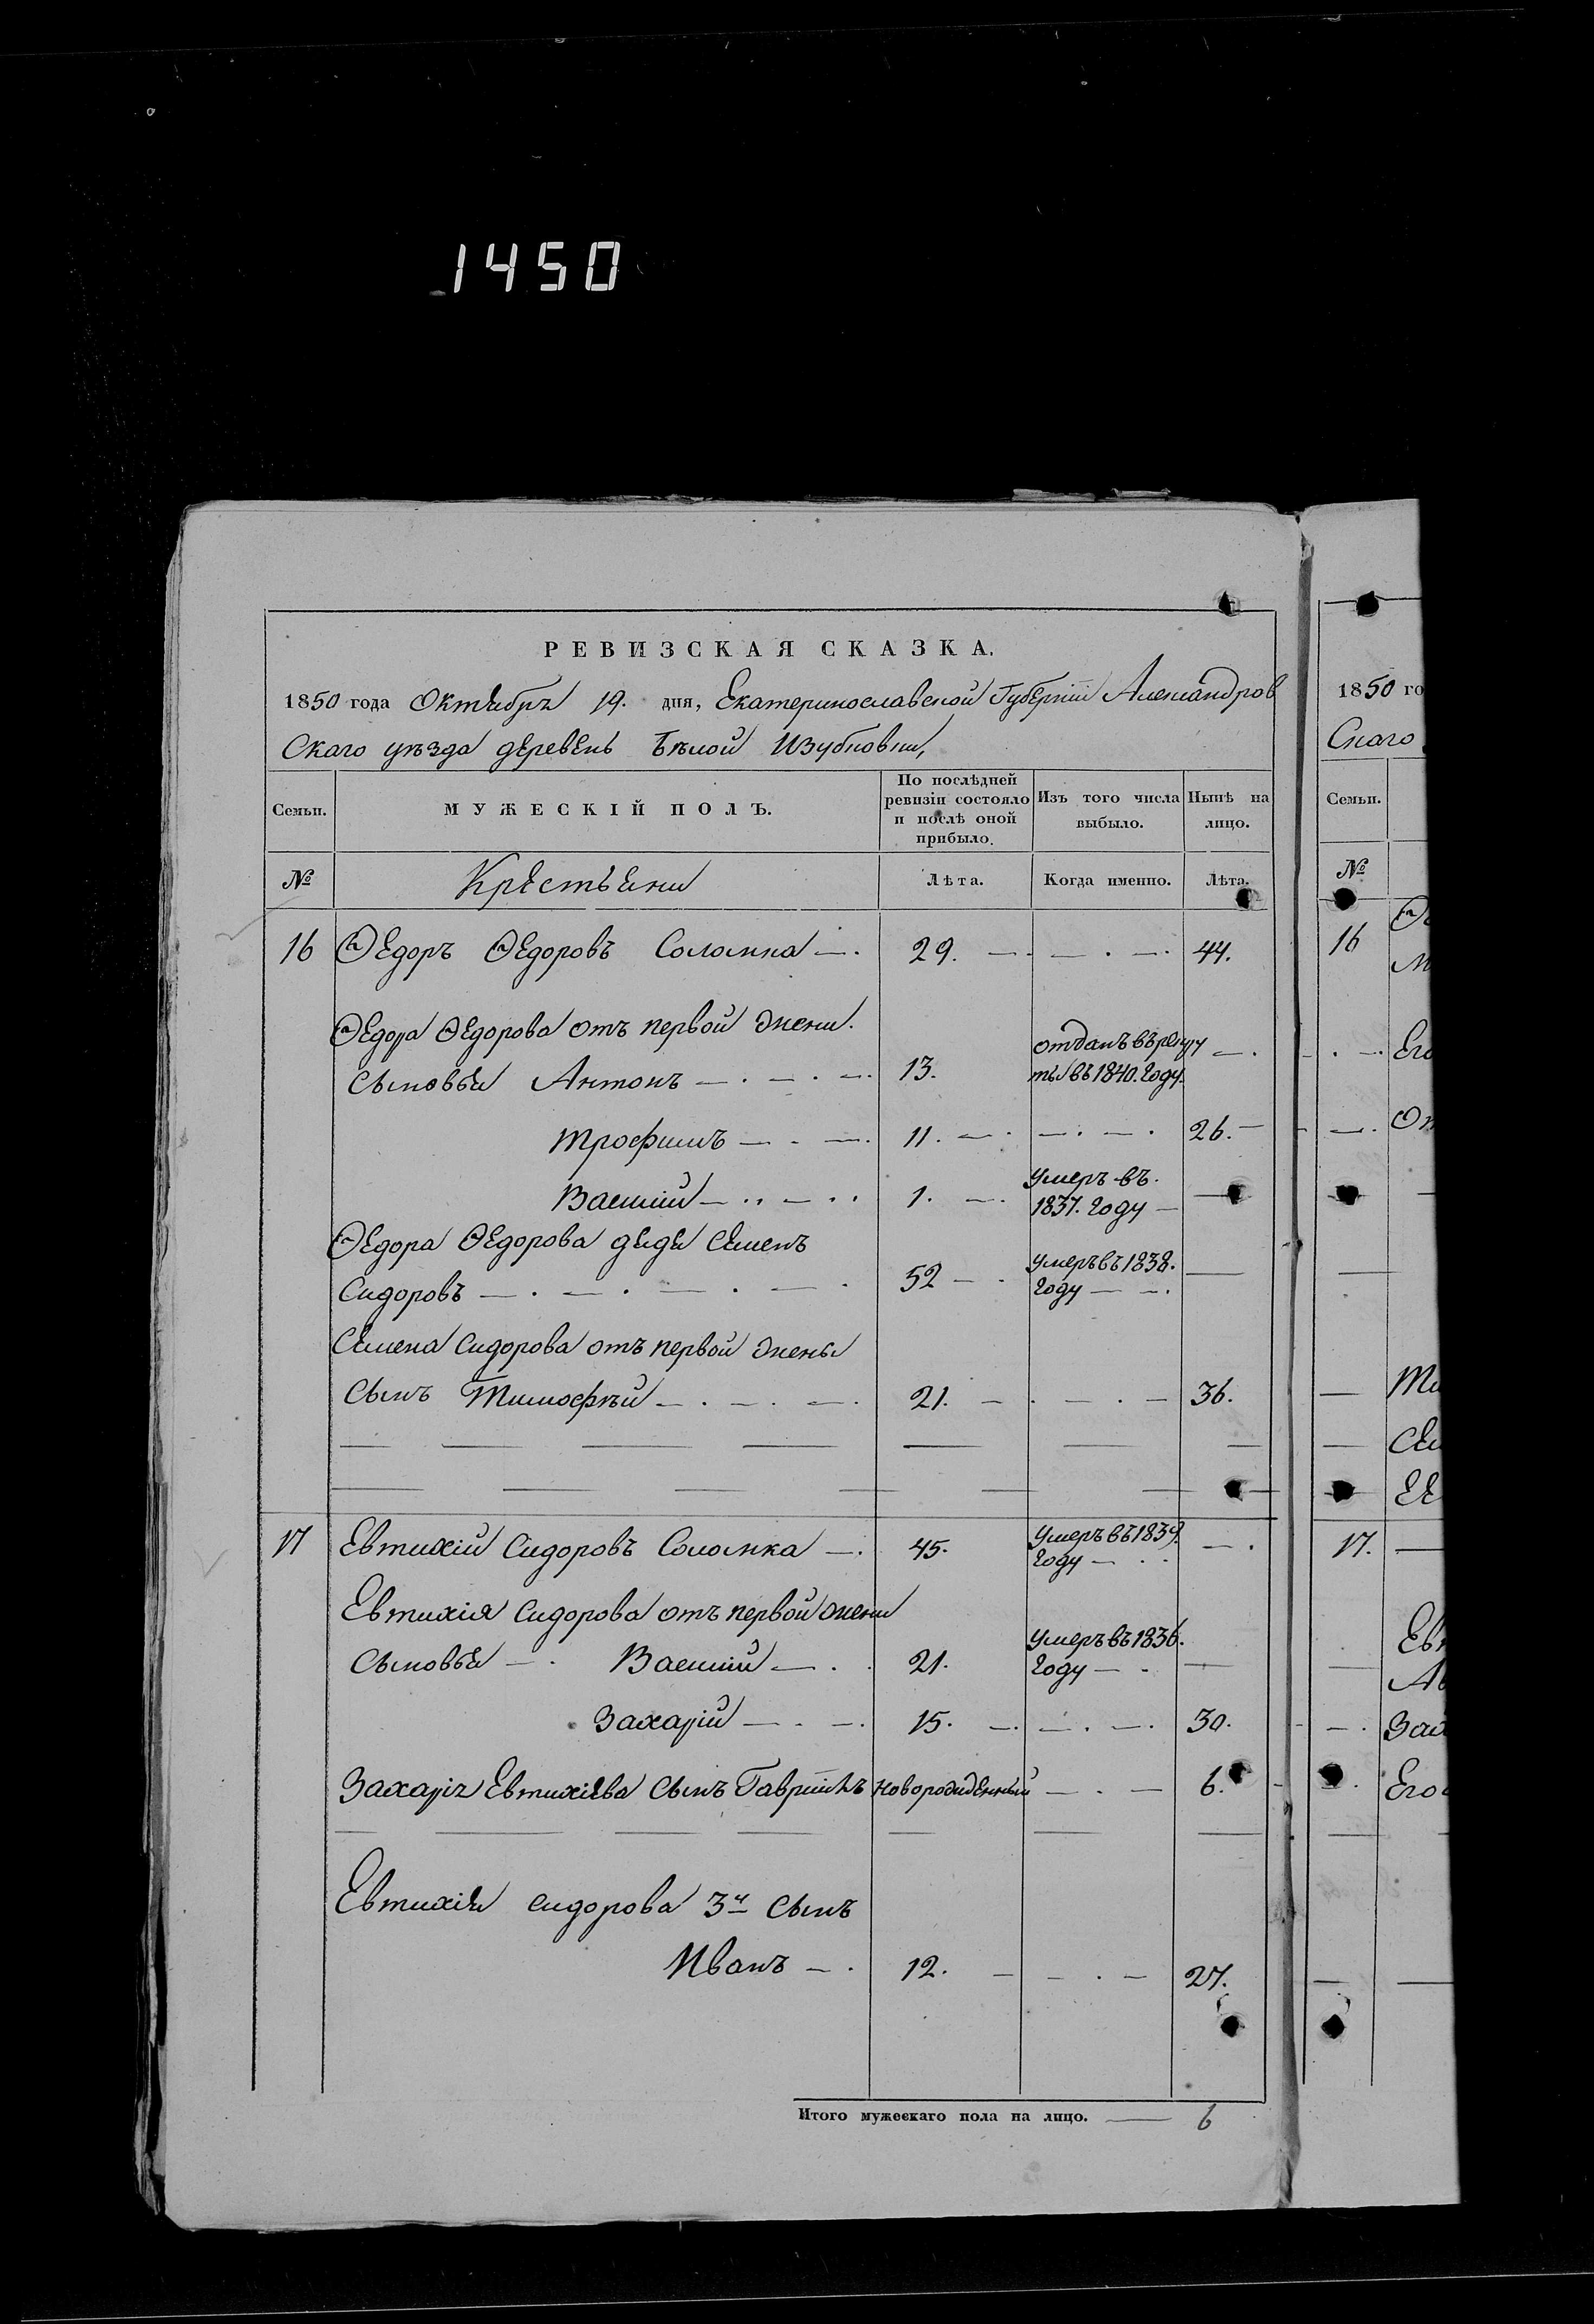 1450
РЕВИЗСКАЯ СКАЗКА.
1850 года Октября 19. дня, Екатеринославской Губерніи Александров
Скаго уѣзда деревень Бѣлой
Семьи.
МУЖЕСКІЙ ПОЛЪ.
По послѣдней ревизіи состояло и послѣ оной прибыло.
Изъ того числа выбыло.
Нынѣ на лицо.
№
Крестьяни
Лѣта.
Когда именно.
Лѣта.
16 Ѳедоръ Ѳедоровъ Соломка — . 29. — . — . — . 44.
Ѳедора Ѳедорова отъ первой жени.
Сыновья Антонъ — . — . — . 13. отданъ въ рекру ты въ 1840. Году. — .
Трофимъ — . — . 11. — . — . — . 26. —
Василій — .. — .. 1. — . Умеръ въ. 1837. Году — —
Ѳедора Ѳедорова дядя Семенъ
Сидоровъ — . — . — . — . 52 — . Умеръ въ 1838. Году — — . —
Семена Сидорова отъ первой жены
Сынъ Тимофѣй — . — . — . 21. — . — . — 36.
17 Евтихій Сидоровъ Соломка — . 45. Умеръ въ 1839. Году — . . — .
Евтихія Сидорова отъ первой жени
Сыновья — . Василій — . . 21. Умеръ въ 1836. Году — . —
Захарій — . — . 15. — . — . — . 30.
Захарія Евтихіева Сынъ Гаврiилъ новорожденный — . — 6.
Евтихія Сидорова 3й Сынъ
Иванъ — . 12. — — . — 27.
Итого мужескаго пола на лицо. — 6
1850 го
Скаго
Семьи.
№
16
Ѳе
Его
От
Ти
Сем
ЕЕ
17. —
Евт
Зах
Его